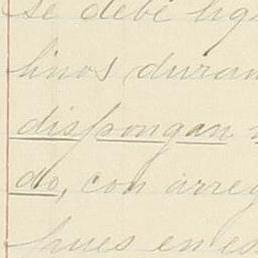 se debe lig
linos duran
dispongan
do, con arreg
pues en es